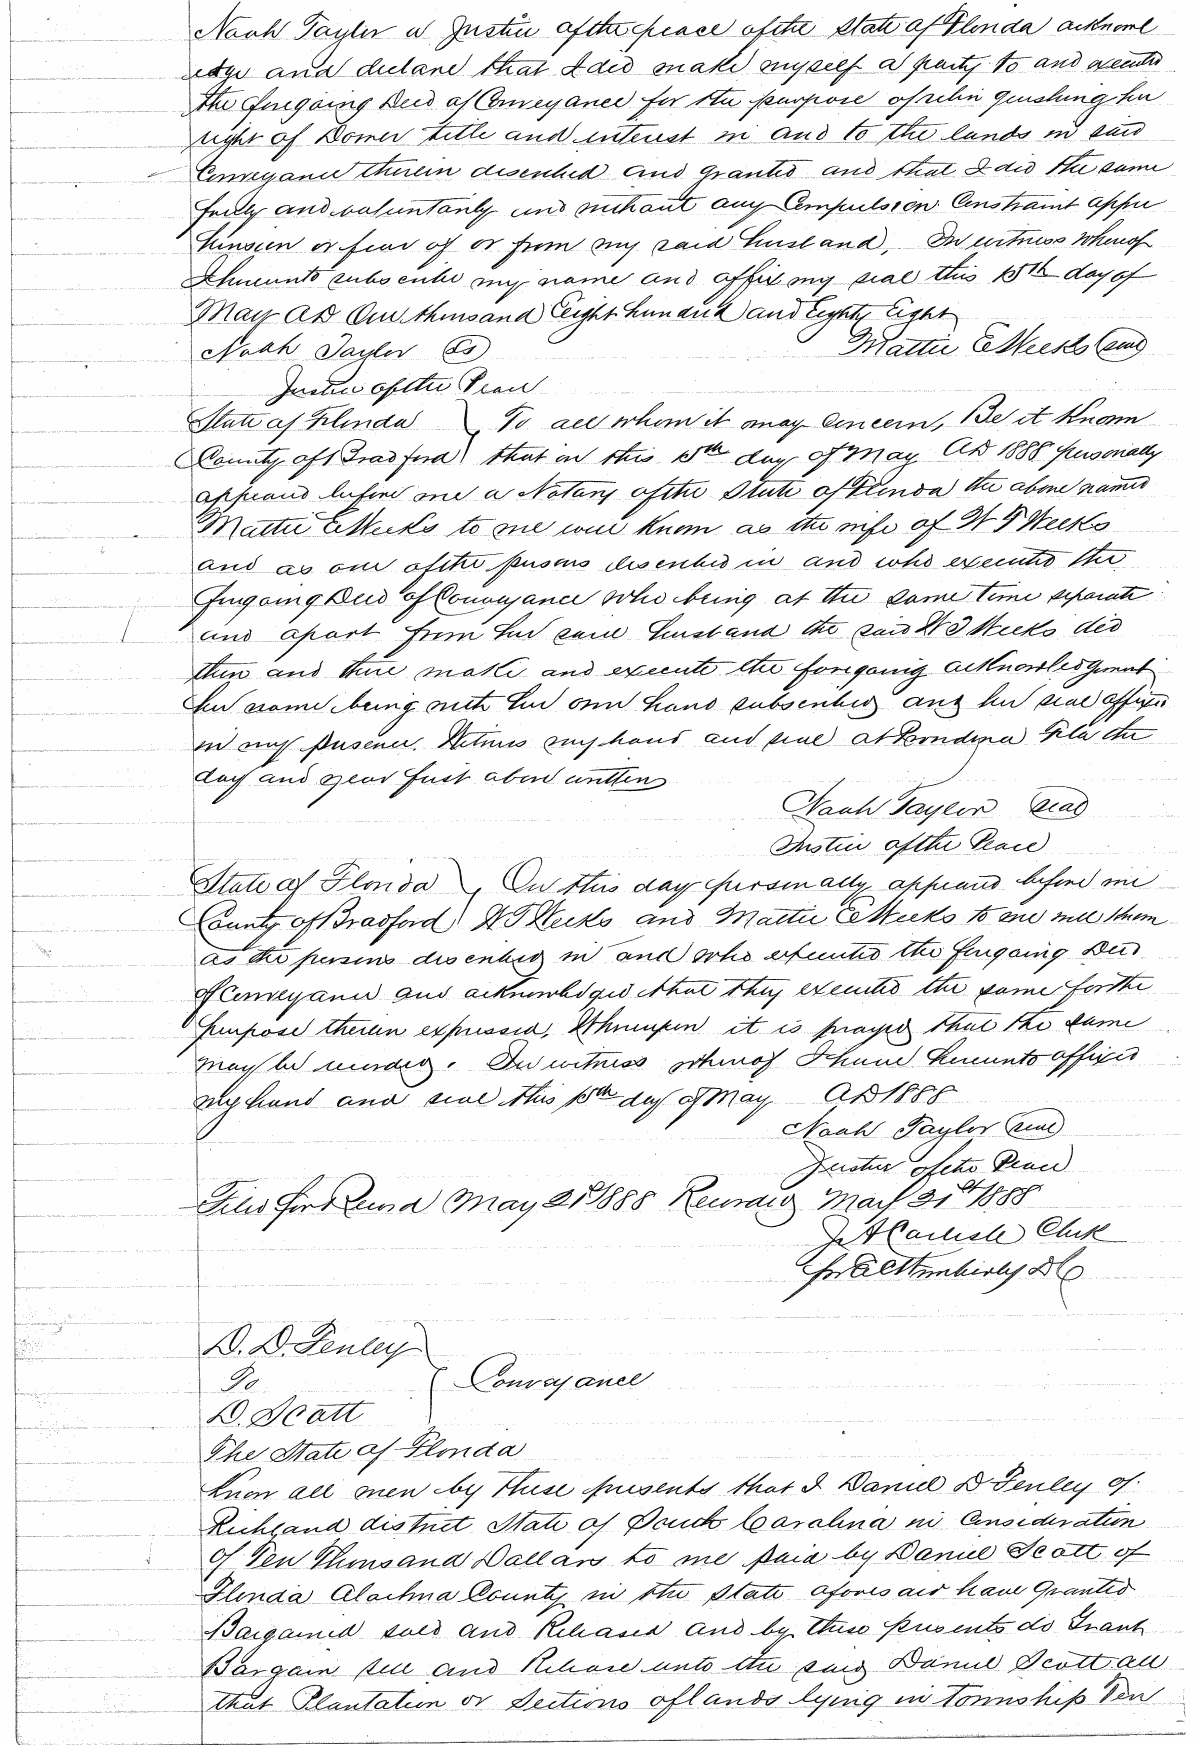 Noah Taylor a Justice of the peace of the State of Florida acknowl
edge and declare that I did make myself a party to and executed
the foregoing Deed of Conveyance for the purpose of relin quishing her
right of Dower title and interest in and to the lands in said
Conveyance therein described and granted and that I did the same
freely and voluntarily and without any Compulsion Constraint appre
hension or fear of or from my said husband, In witness whereof
I hereunto subscribe my name and affix my seal this 15th day of
May AD One thousand Eight hundred and Eighty Eight
Noah Taylor Mattie E Weeks (seal)
Justice of the Peace
State of Florida } To all whom it may Concern, Be it Known
County of Bradford } that on this 15th day of May AD 1888 personally
appeared before me a Notary of the State of Florida the above named
Mattie E Weeks to me well Known as the wife of W T Weeks
and as one of the persons described in and who executed the
Forgoing Deed of Conveyance who being at the same time separate
and apart from her said husband the said W T Weeks did
then and there make and execute the foregoing acknowledgment
her name being with her own hand subscribed and her seal affixed
in my presence. Witness my hand and seal at Fla the
day and year first above written
Noah Taylor seal
Justice of the Peace
State of Florida } On this day personally appeared before me
County of Bradford } W T Weeks and Mattie E Weeks to me well
as the persons described in and who executed the forgoing Deed
of Conveyance and acknowledged that they executed the same for the
purpose therein expressed, Whereupon it is prayed that the same
may be recorded. In witness whereof I have hereunto affixed
my hand and seal this 15th day of May AD 1888
Noah Taylor (seal)
Justice of the Peace
Filed for Record May 21st 1888 Recorded May 21st 1888
Carlisle Clerk
D C
D. D. Fenley
To } Conveyance
D. Scott
The State of Florida
Know all men by these presents that I Daniel D Fenley of
Richland district State of South Carolina in Consideration
of Ten Thousand Dollars to me paid by Daniel Scott of
Florida Alachua County in the State aforesaid have Granted
Bargained sold and Released and by these presents do Grant
Bargain sell and Release unto the said Daniel Scott all
that Plantation or Sections of lands lying in township Ten